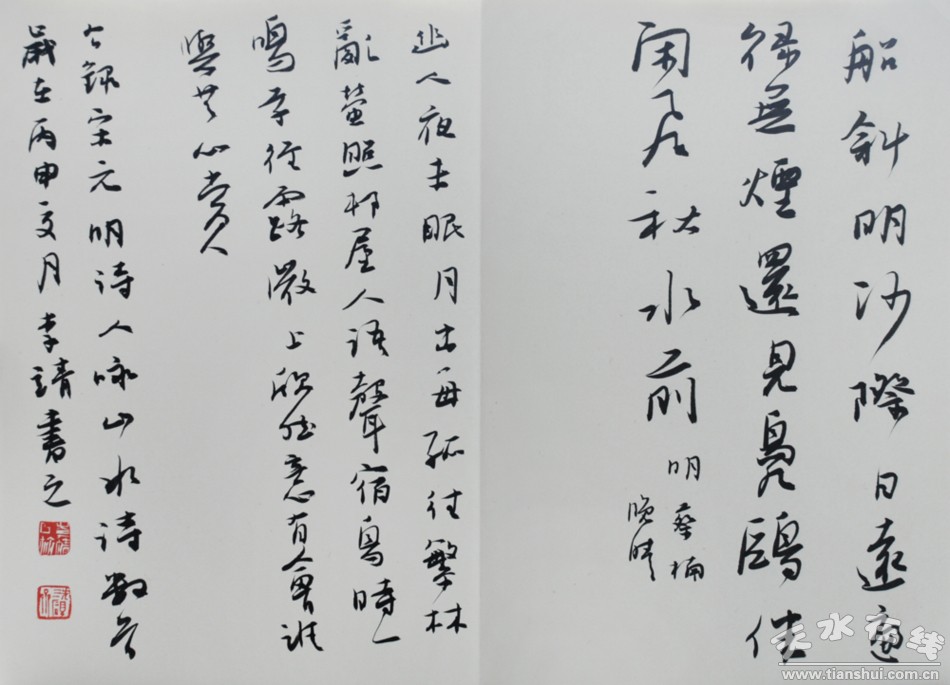 船斜明沙際日遠過
徑無煙還見鳧鷗傍
閑居秋水前
明蔡楠
晚晴
幽人夜未眠月出每孤往繁林
亂螢照村屋人語聲宿鳥時一
鳴草徑露微上欣然意有會誰
與共心賞
今録宋元明诗人咏山水诗数首
歲在丙申文月李靖書之
天水在线
www.tianshui.com.cn